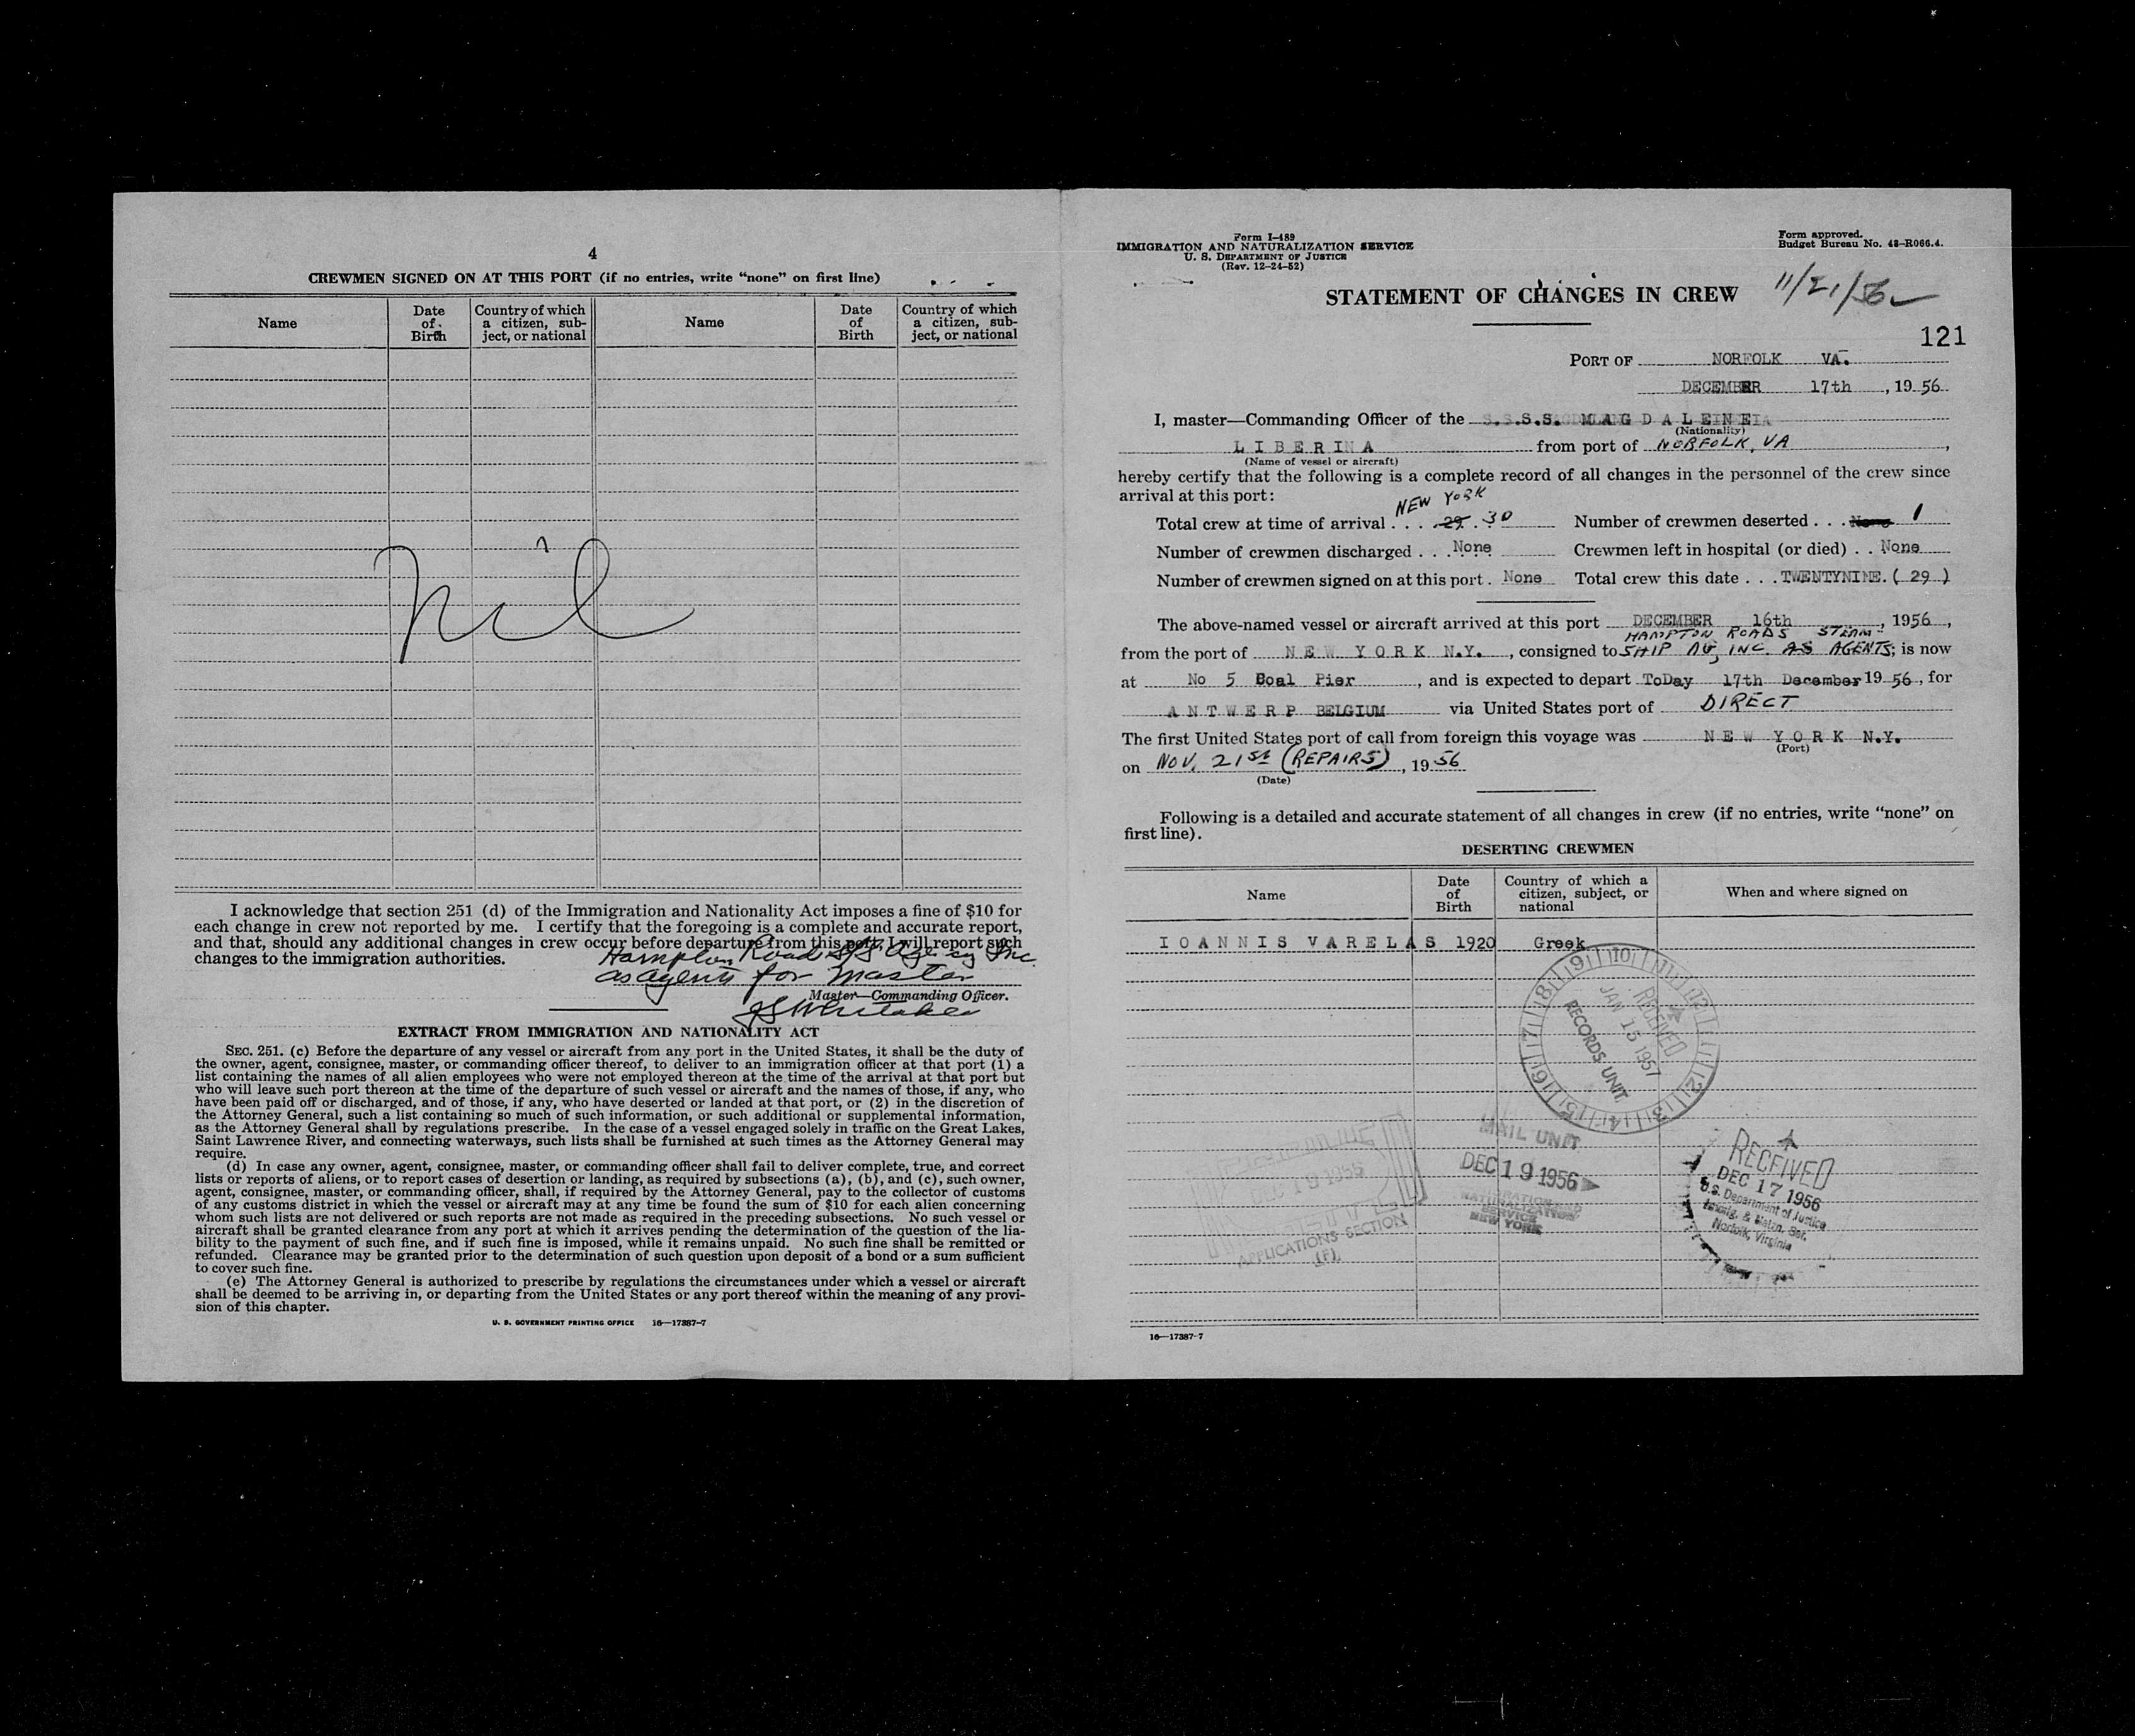 4
CREWMEN SIGNED ON AT THIS PORT (if no entries, write “none” on first line)
Name
Date of Birth
Country of which a citizen, subject, or national
Name
Date of Birth
Country of which a citizen, subject, or national
Nil
I acknowledge that section 251 (d) of the Immigration and Nationality Act imposes a fine of $10 for
each change in crew not reported by me. I certify that the foregoing is a complete and accurate report,
and that, should any additional changes in crew occur before departure from this port, I will report such
changes to the immigration authorities.
Hampton Roads S/S Agency Inc.
as agents for Master
Master—Commanding Officer.
EXTRACT FROM IMMIGRATION AND NATIONALITY ACT
SEC. 251. (c) Before the departure of any vessel or aircraft from any port in the United States, it shall be the duty of
the owner, agent, consignee, master, or commanding officer thereof, to deliver to an immigration officer at that port (1) a
list containing the names of all alien employees who were not employed thereon at the time of the arrival at that port but
who will leave such port thereon at the time of the departure of such vessel or aircraft and the names of those, if any, who
have been paid off or discharged, and of those, if any, who have deserted or landed at that port, or (2) in the discretion of
the Attorney General, such a list containing so much of such information, or such additional or supplemental information,
as the Attorney General shall by regulations prescribe. In the case of a vessel engaged solely in traffic on the Great Lakes,
Saint Lawrence River, and connecting waterways, such lists shall be furnished at such times as the Attorney General may
require.
(d) In case any owner, agent, consignee, master, or commanding officer shall fail to deliver complete, true, and correct
lists or reports of aliens, or to report cases of desertion or landing, as required by subsections (a), (b), and (c), such owner,
agent, consignee, master, or commanding officer, shall, if required by the Attorney General, pay to the collector of customs
of any customs district in which the vessel or aircraft may at any time be found the sum of $10 for each alien concerning
whom such lists are not delivered or such reports are not made as required in the preceding subsections. No such vessel or
aircraft shall be granted clearance from any port at which it arrives pending the determination of the question of the lia-
bility to the payment of such fine, and if such fine is imposed, while it remains unpaid. No such fine shall be remitted or
refunded. Clearance may be granted prior to the determination of such question upon deposit of a bond or a sum sufficient
to cover such fine.
(e) The Attorney General is authorized to prescribe by regulations the circumstances under which a vessel or aircraft
shall be deemed to be arriving in, or departing from the United States or any port thereof within the meaning of any provi-
sion of this chapter.
U. S. GOVERNMENT PRINTING OFFICE 16—17387-7
Form I-489
IMMIGRATION AND NATURALIZATION SERVICE
U. S. DEPARTMENT OF JUSTICE
(Rev. 12-24-52)
Form approved.
Budget Bureau No. 43-R066.4.
STATEMENT OF CHANGES IN CREW
11/21/56
121
PORT OF NORFOLK VA.
DECEMBER 17th, 19 56
I, master—Commanding Officer of the S.S. MAGDALEINE
(Nationality)
LIBERIA from port of NORFOLK, VA,
(Name of vessel or aircraft)
hereby certify that the following is a complete record of all changes in the personnel of the crew since
arrival at this port:
NEW YORK
Total crew at time of arrival . . . 29 . 30 Number of crewmen deserted . . . None 1
Number of crewmen discharged . . . None Crewmen left in hospital (or died) . . None
Number of crewmen signed on at this port . None Total crew this date . . . TWENTYNINE. ( 29 )
The above-named vessel or aircraft arrived at this port DECEMBER 16th, 1956,
HAMPTON ROADS STEAM-
from the port of NEW YORK N.Y., consigned to SHIP AG, INC. AS AGENTS; is now
at No 5 Coal Pier, and is expected to depart ToDay 17th December 19 56, for
ANTWERP BELGIUM via United States port of DIRECT
The first United States port of call from foreign this voyage was NEW YORK N.Y.
(Port)
on NOV. 21st (REPAIRS), 19 56
(Date)
Following is a detailed and accurate statement of all changes in crew (if no entries, write “none” on
first line).
DESERTING CREWMEN
Name
Date of Birth
Country of which a citizen, subject, or national
When and where signed on
IOANNIS VARELAS 1920 Greek
RECEIVED
JAN 15 1957
RECORDS UNIT
DEC 19 1956
APPLICATIONS SECTION
(F)
MAIL UNIT
DEC 19 1956
NEW YORK
RECEIVED
DEC 17 1956
U.S. Department of Justice
Immig. & Natzn. Ser.
Norfolk, Virginia
16—17387-7